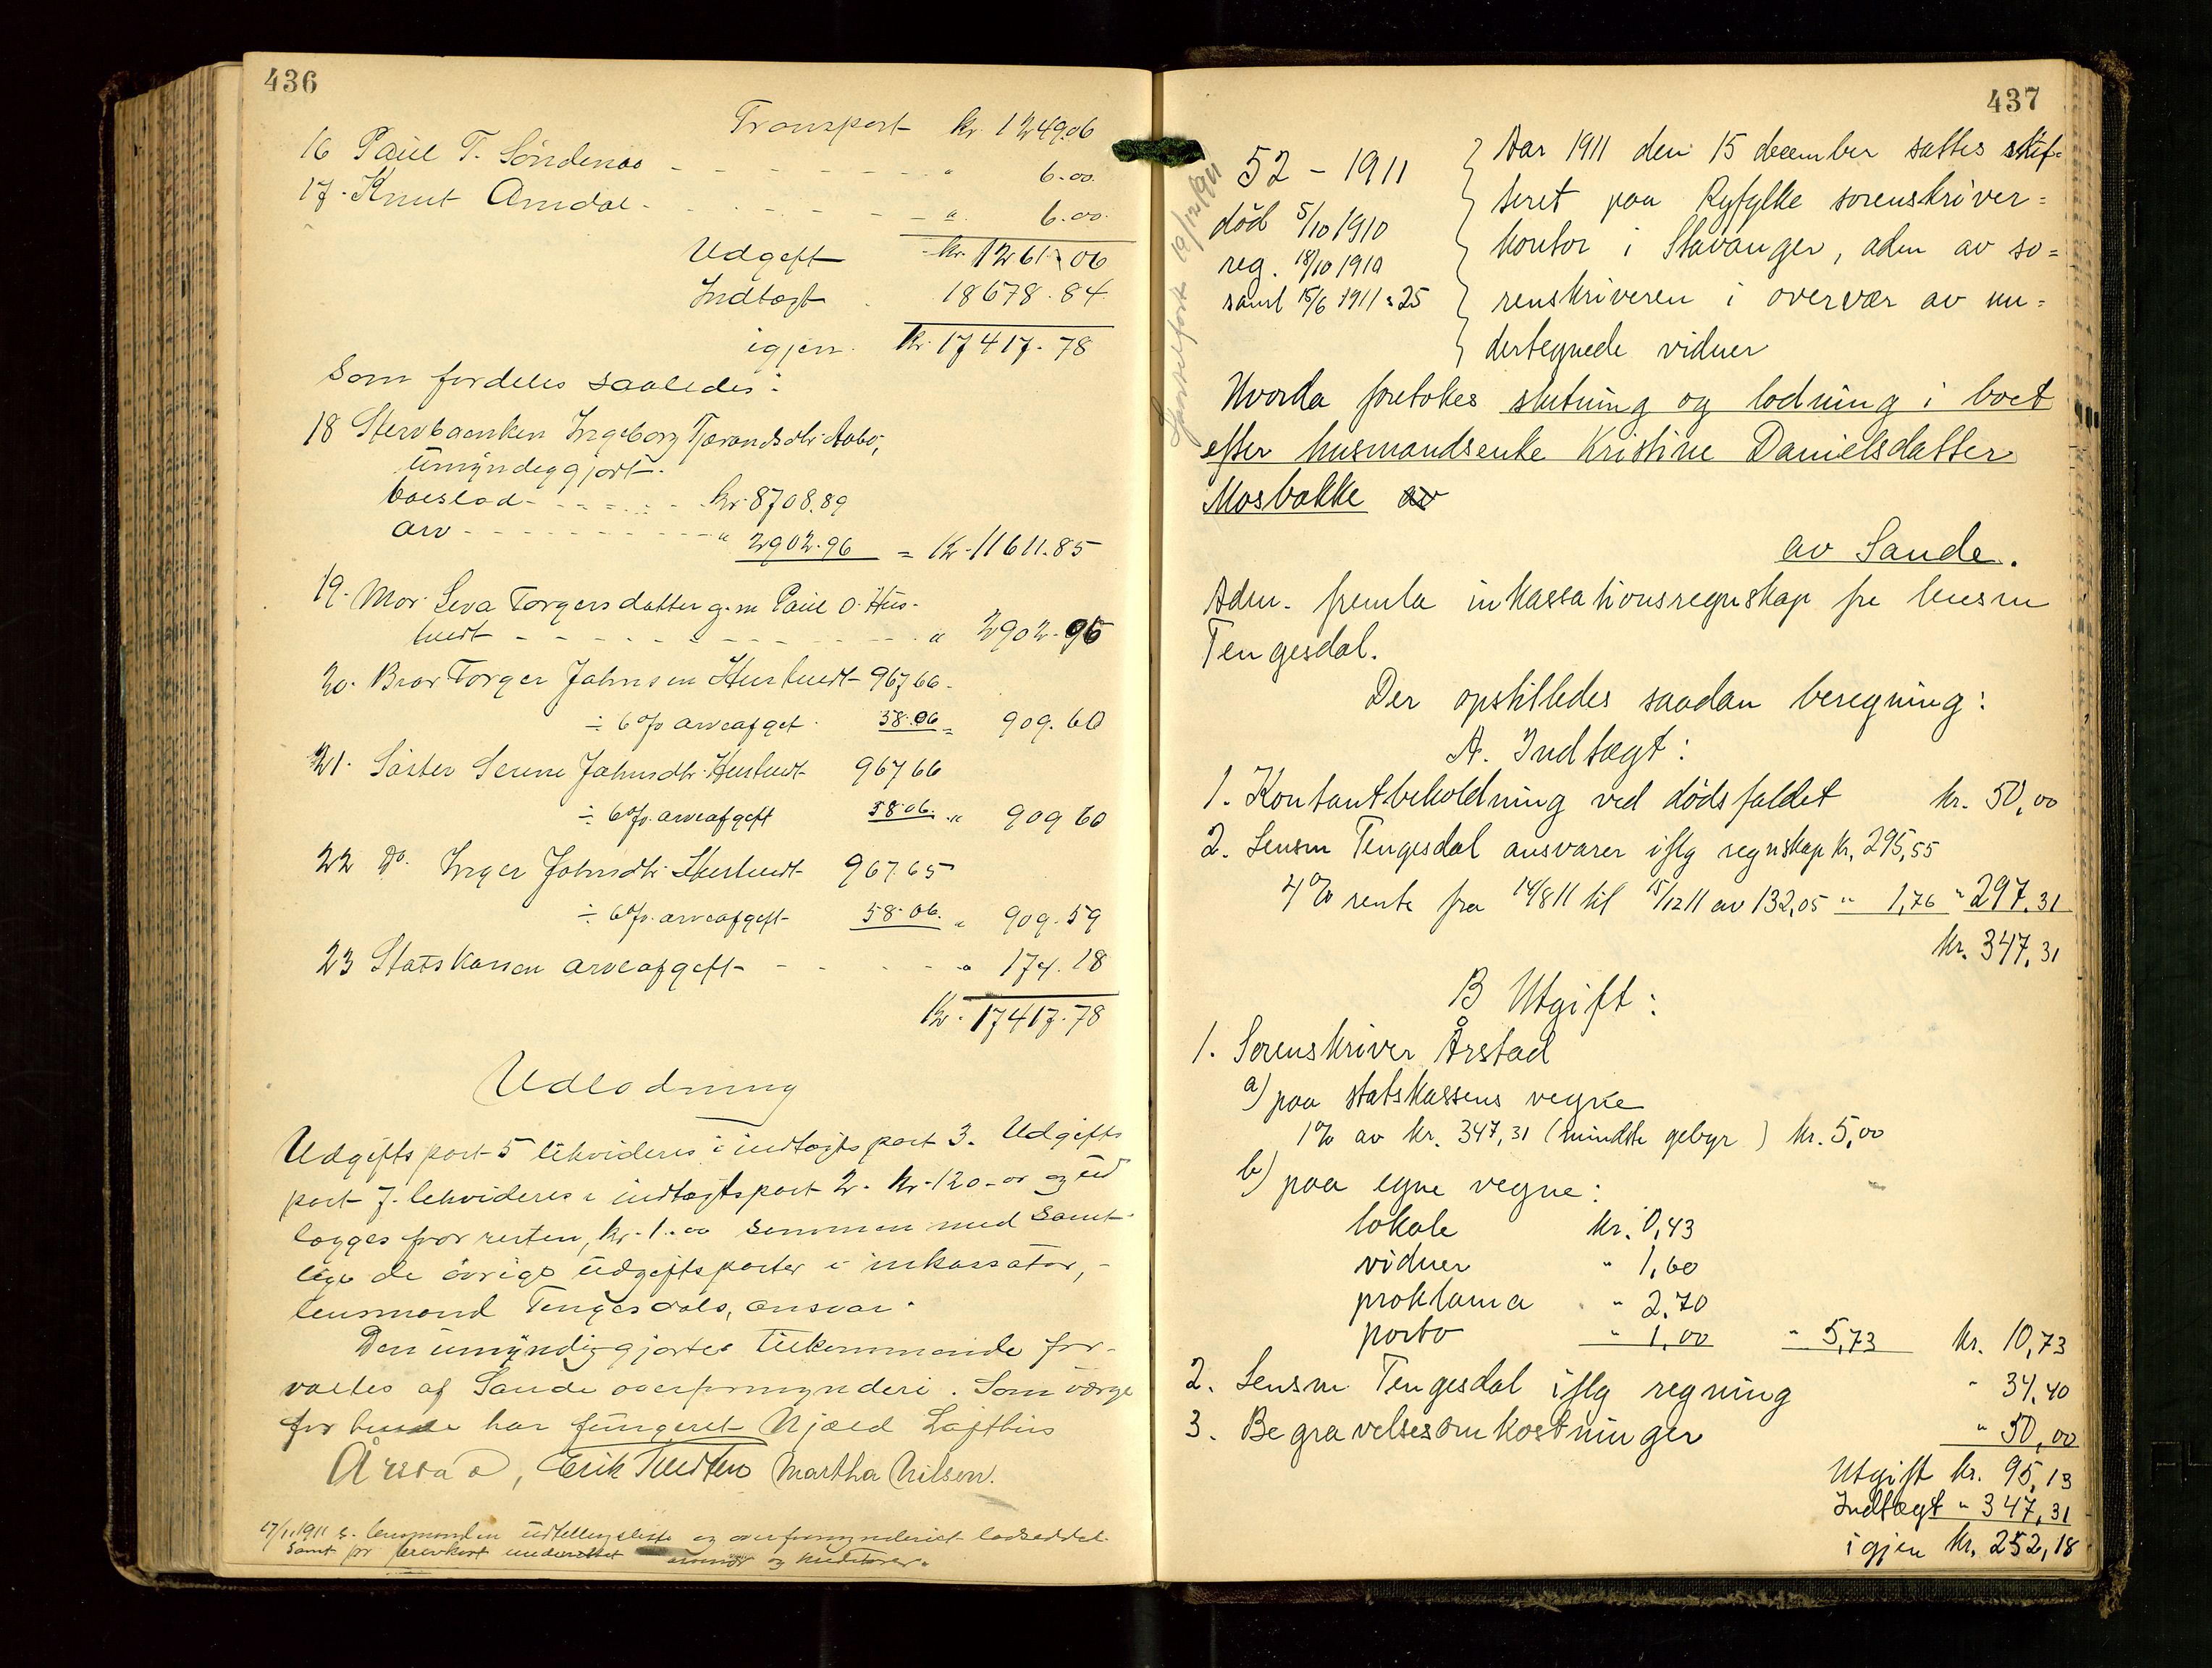 436
Transport kr. 1249.06
16 Paul T. Søndenaa - - - - - - - - " 6.00
17. Knut Amdal - - - - - - - " 6.00.
Udgift kr. 1261.06
Indtægt 18678.84
igjen. kr. 17417.78
Som fordeles saaledes:
18 Stervboenken Ingeborg Tjærandsdtr. Aabø,
umyndiggjort.
boeslod - - - - - - kr. 8708.89
arv - - - - - - - - - - " 2902.96 = kr. 11611.85
19. Mor Seva Torgersdatter g. m. Paul O. Hus-
tuedt - - - - - - - - - - - - - - " 2902.96
20. Bror Torger Johnsen 967 66.
÷ 6% arveafget. 58.06 = 909.60
21. Søster Serine Johnsdtr. 967 66
÷ 6% arveafgeft 58.06. " 909 60
22 Do. Inger Johnsdtr. 967.65
÷ 6% arveafgeft 58.06. " 909.59
23 Statskassen arveafgeft - - - - - - " 174.18
Kr. 17417.78
Udlodning
Udgiftspost 5 likvideres i indtægtspost 3. Udgifts
post 7. likvideres i indtægtspost 2. kr. 120.00 og ud
lægges for resten, kr. 1.00 sammen med samt
lige de øvrige udgiftsposter i inkassator,
lensmand Tengesdals, ansvar.
Den umyndiggjortes tilkommende for-
valtes af Sande overformynderi. Som værge
for hende har fungeret Njæld Lofthus
Årstad, Erik Martha Nilsen.
17/1.1911 s. lensmanden udtellingsliste og overformynderiet lodseddel
samt pr brevkort underrettet arvinger og kreditorer.
437
52 - 1911
død 5/10 1910
reg. 18/10 1910
saml 15/6 1911 : 25
Aar 1911 den 15 december sattes skif-
teret paa Ryfylke sorenskriver=
kontor i Stavanger, adm av so=
renskriveren i overvær av un=
dertegnede vidner
Hvorda foretokes slutning og lodning i boet
efter husmandsenke Kristine Danielsdatter
Mosbakke av
av Sande.
Adm. fremla inkassationsregnskap fra lensm
Tengesdal.
Der opstilledes saadan beregning:
A. Indtægt:
1. Kontantbeholdning ved dødsfaldet kr. 50,00
2. Lensm Tengesdal ansvarer iflg regnskap kr. 295,55
4% rente fra 14/8 11 til 15/12 11 av 132,05 " 1,76 " 297,31
kr. 347,31
B Utgift:
1. Sorenskriver Årstad
a) paa statskassens vegne
1% av kr. 347,31 (mindste gebyr) kr. 5,00
b) paa egne vegne:
lokale kr. 0,43
vidner " 1,60
proklama " 2,70
porto " 1,00 " 5,73 kr. 10,73
2. Lensm Tengesdal iflg regning " 34,40
3. Begravelsesomkostninger " 50,00
Utgift kr. 95,13
Indtægt " 347,31
igjen kr. 252,18